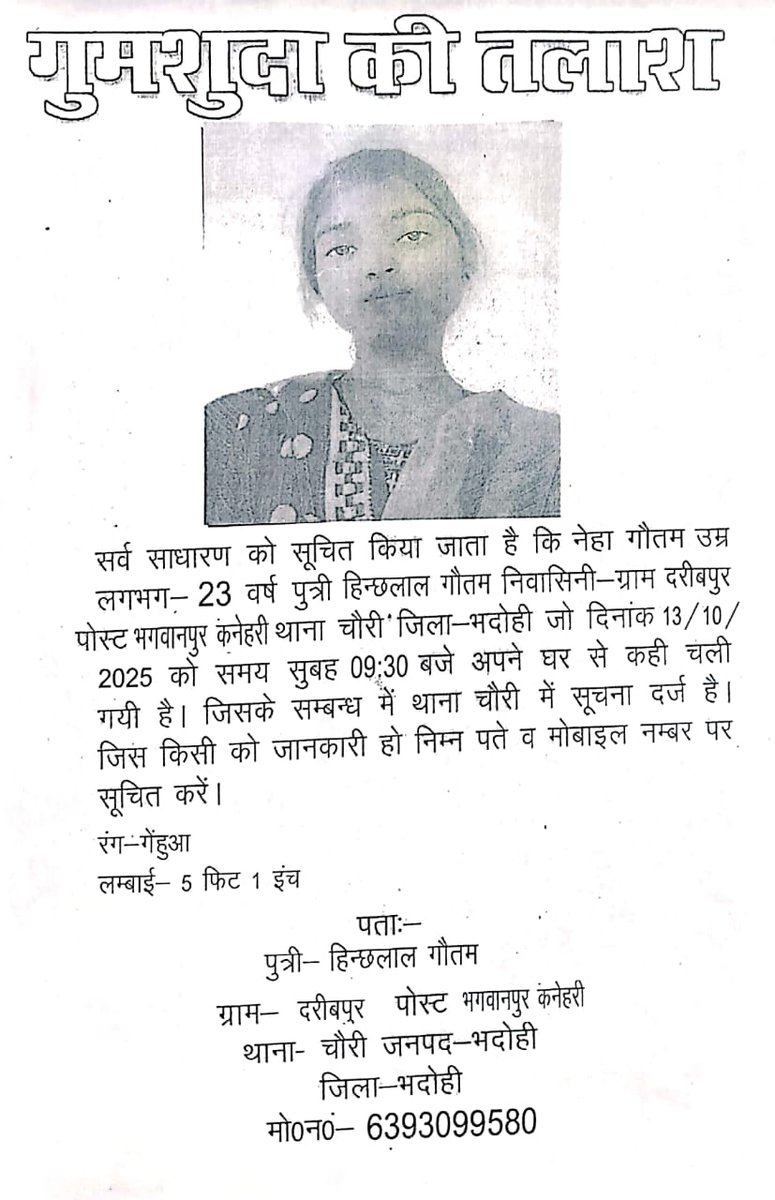 गुमशुदा की तलाश
सर्व साधारण को सूचित किया जाता है कि नेहा गौतम उम्र
लगभग– 23 वर्ष पुत्री हिन्छलाल गौतम निवासिनी–ग्राम दरीबपुर
पोस्ट भगवानपुर कनेहरी थाना चौरी जिला–भदोही जो दिनांक 13/10/
2025 को समय सुबह 09:30 बजे अपने घर से कही चली
गयी है। जिसके सम्बन्ध में थाना चौरी में सूचना दर्ज है।
जिस किसी को जानकारी हो निम्न पते व मोबाइल नम्बर पर
सूचित करें।
रंग–गेंहुआ
लम्बाई– 5 फिट 1 इंच
पताः–
पुत्री– हिन्छलाल गौतम
ग्राम– दरीबपुर पोस्ट भगवानपुर कनेहरी
थाना- चौरी जनपद–भदोही
जिला–भदोही
मो0न0– 6393099580